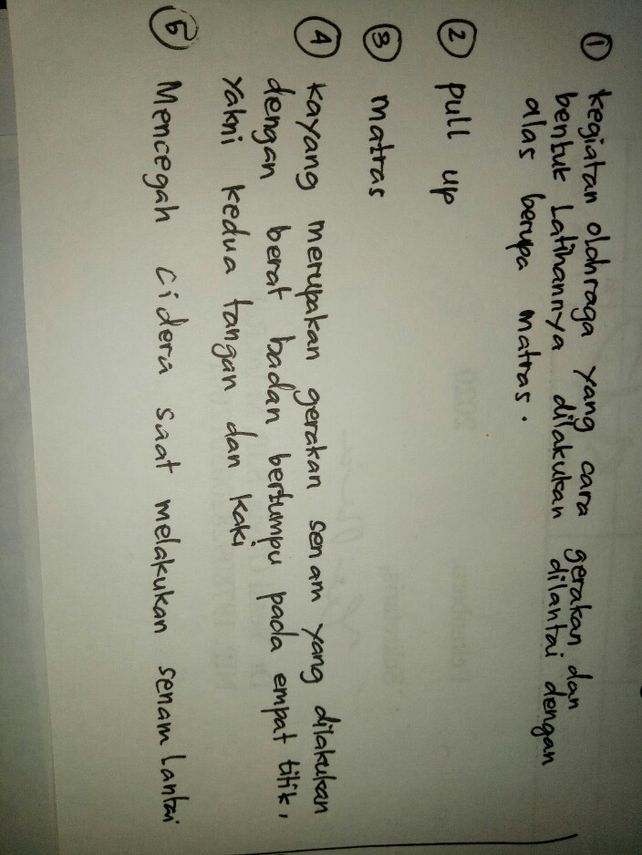 ① kegiatan olahraga yang cara gerakan dan
bentuk Latihannya dilakukan dilantai dengan
alas berupa matras.
② pull up
③ matras
④ kayang merupakan gerakan senam yang dilakukan
dengan berat badan bertumpu pada empat titik,
yakni kedua tangan dan kaki
⑤ Mencegah cidera saat melakukan senam Lantai